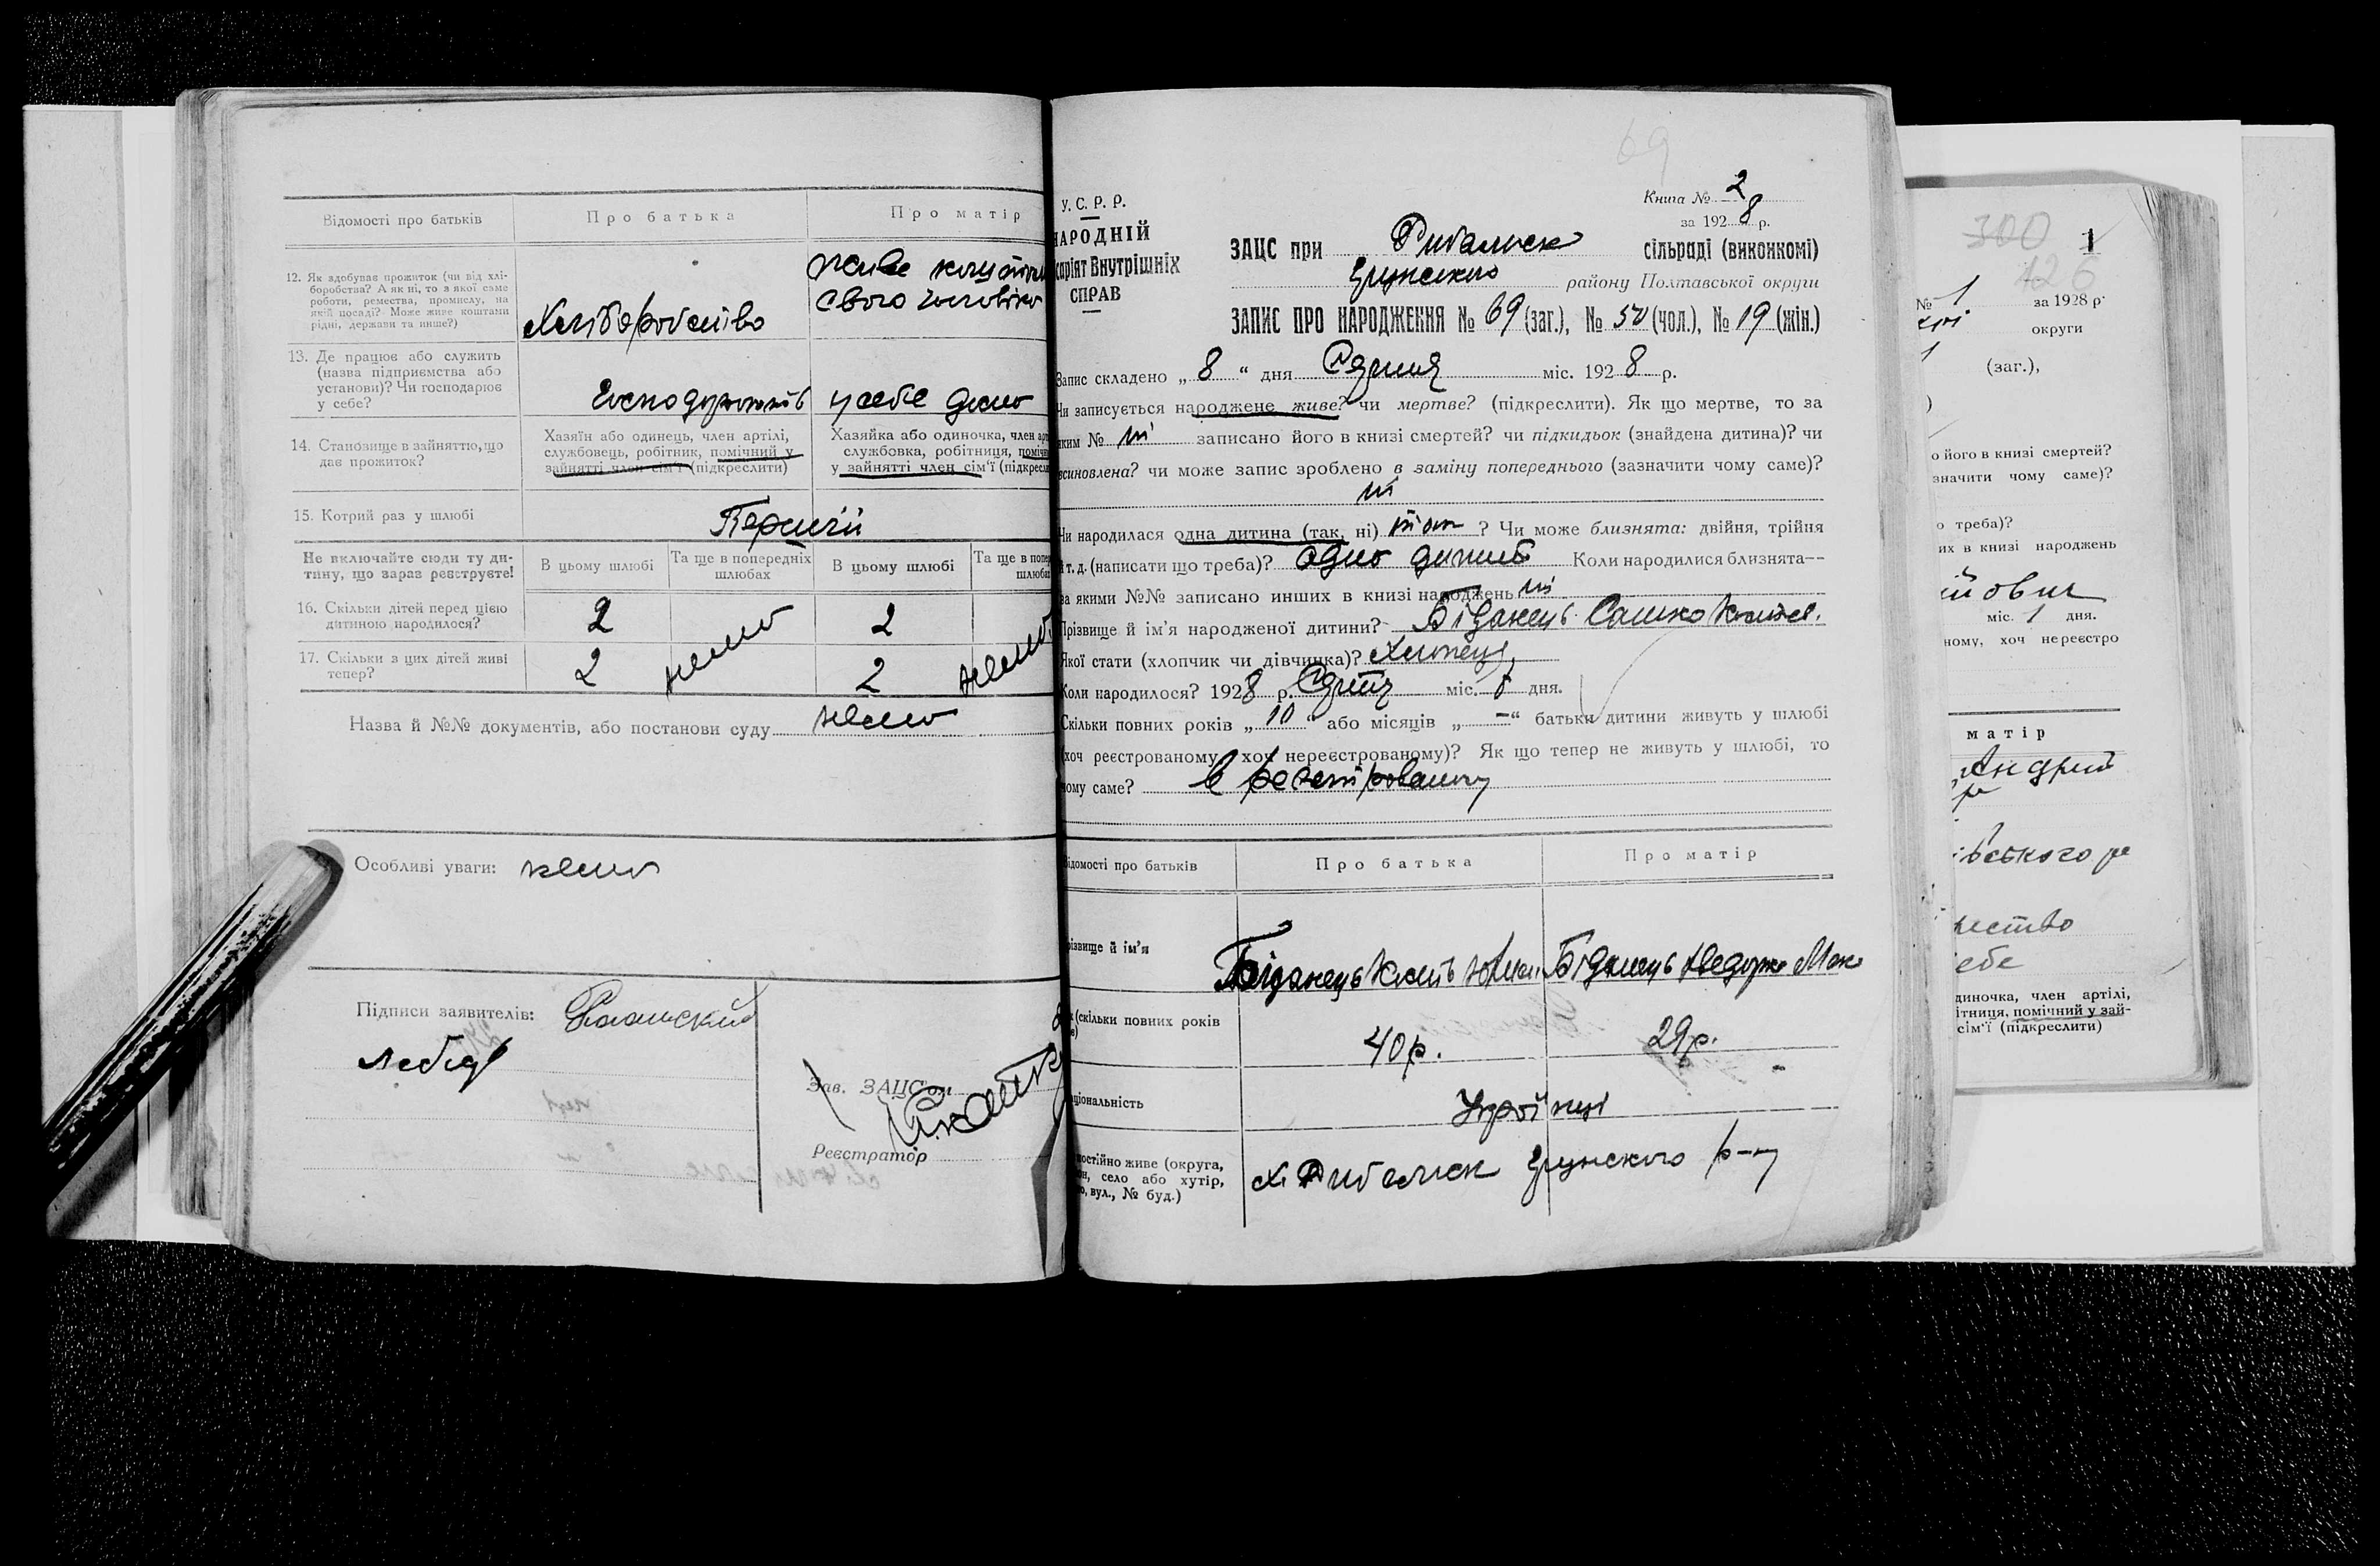 Відомості про батьків
Про батька
Про матір
12. Як здобуває прожиток (чи від хлі-
боробства? А як ні, то з якої саме
роботи, ремества, промислу, на
якій посаді? Може живе коштами
рідні, держави та инше?)
Хліборобство
живе
свого чоловіка
13. Де працює або служить
(назва підприємства або
установи)? Чи господарює
у себе?
у себе дома
14. Становище в зайняттю, що
дає прожиток?
Хазяїн або одинець, член артілі,
службовець, робітник, помічний у
зайнятті член сім'ї (підкреслити)
Хазяйка або одиночка, член арт
службовка, робітниця, поміч
у зайнятті член сім'ї (підкресл
15. Котрий раз у шлюбі
Перший
Не включайте сюди ту ди-
тину, що зараз реєструєте!
В цьому шлюбі
Та ще в попередніх
шлюбах
В цьому шлюбі
Та ще в попе
шлюба
16. Скільки дітей перед цією
дитиною народилося?
2
нема
2
нема
17. Скільки з цих дітей живі
тепер?
2
2
Назва й №№ документів, або постанови суду нема
Особливі уваги: нема
Підписи заявителів:
Лебідь
Зав. ЗАЦСом
Реєстратор
69
У.С.Р.Р.
НАРОДНІЙ
саріят Внутрішніх
СПРАВ
Книга № 2
за 1928 р.
ЗАЦС при Рибальск сільраді (виконкомі)
Грунського району Полтавської округи
ЗАПИС ПРО НАРОДЖЕННЯ № 69 (заг.), № 50 (чол.), № 19 (жін.)
Запис складено „8“ дня Січня міс. 1928 р.
Чи записується народжене живе? чи мертве? (підкреслити). Як що мертве, то за
яким № ні записано його в книзі смертей? чи підкидьок (знайдена дитина)? чи
всиновлена? чи може запис зроблено в заміну попереднього (зазначити чому саме)?
ні
Чи народилася одна дитина (так, ні) так ? Чи може близнята: двійня, трійня
й т. д. (написати що треба)? одно дитя Коли народилися близнята—
за якими №№ записано инших в книзі народжень ні
Прізвище й ім'я народженої дитини? Біданець Сашко
Якої стати (хлопчик чи дівчинка)? Хлопець
Коли народилося? 1928 р. Січня міс. дня.
Скільки повних років „10“ або місяців „–“ батьки дитини живуть у шлюбі
(хоч реєстрованому, хоч нереєстрованому)? Як що тепер не живуть у шлюбі, то
чому саме? в
Відомості про батьків
Про батька
Про матір
Прізвище й ім'я
Біданець
Біданець
к (скільки повних років
40 р.
29 р.
ціональність
Українці
постійно живе (округа,
он, село або хутір,
о, вул., № буд.)
х. Рибальск Грунського р-ну
300
1
126
№ 1
за 1928 р.
округи
(заг.),
о його в книзі смертей?
значити чому саме)?
о треба)?
их в книзі народжень
йович
міс. 1 дня.
ному, хоч нереєстро
матір
вського р
себе
диночка, член артілі,
ітниця, помічний у зай-
сім'ї (підкреслити)